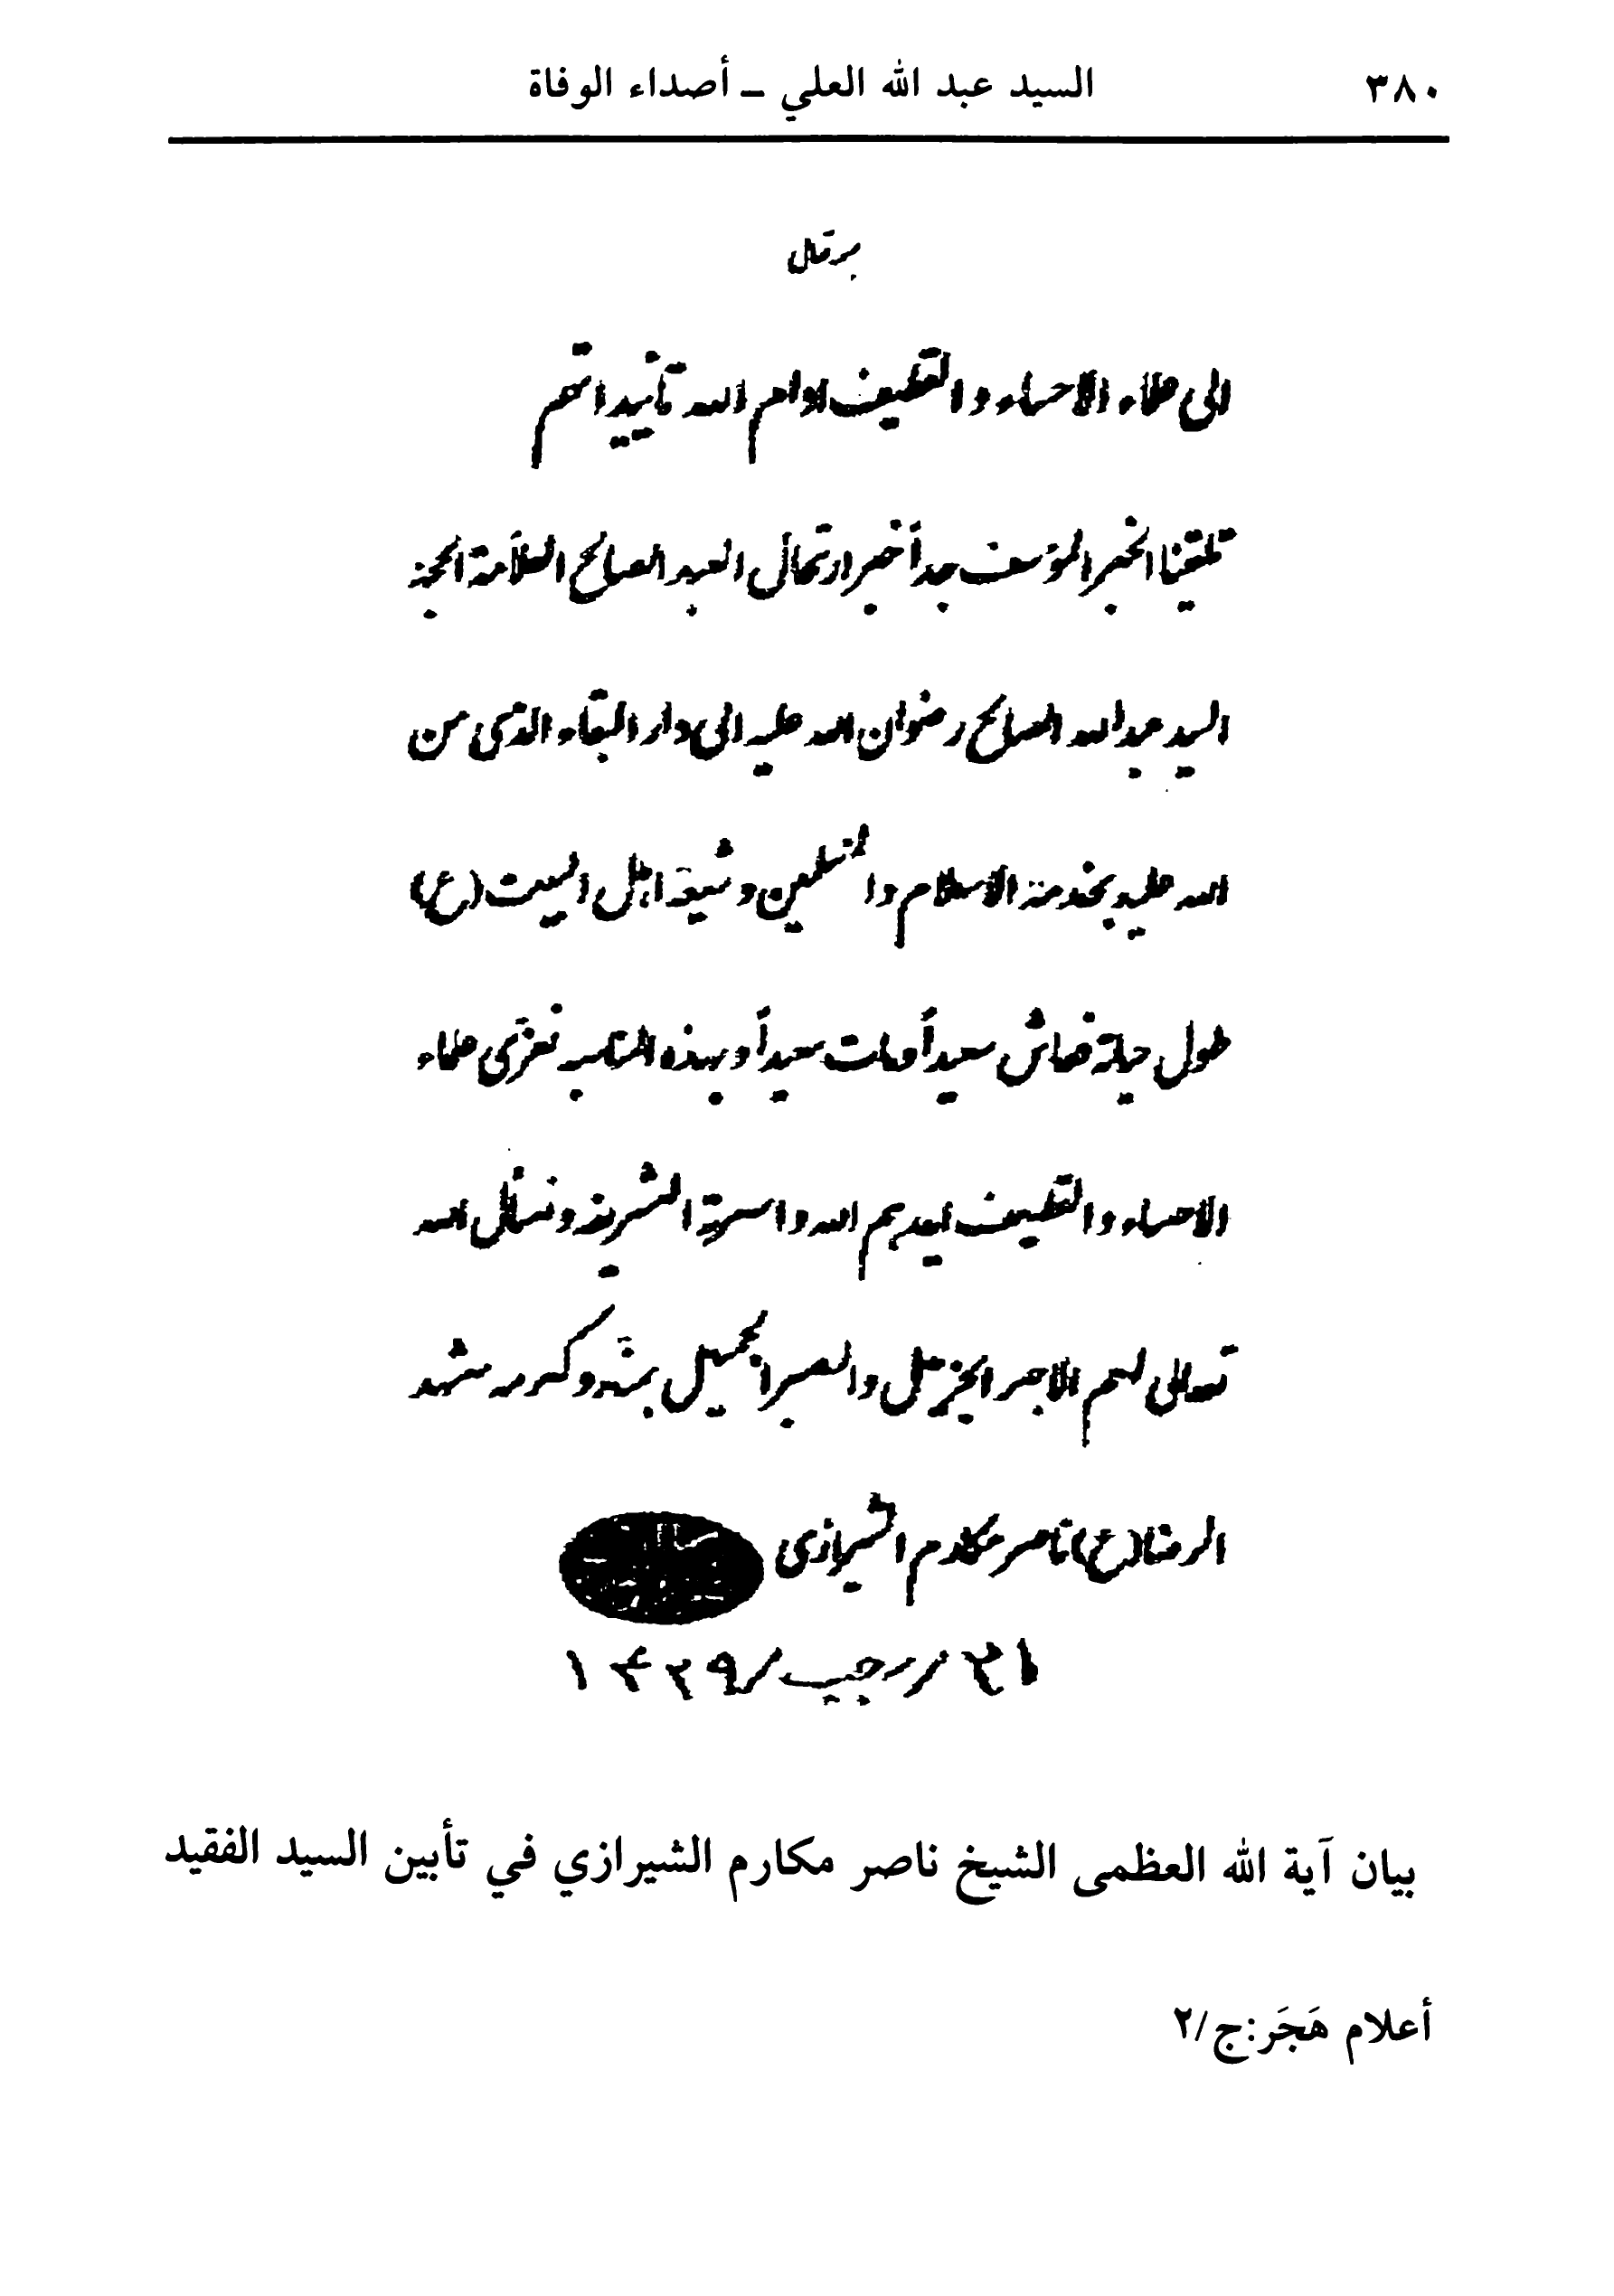 ٣٨٠
السيد عبد الله العلي ــ أصداء الوفاة
الى علماء الاحساء والقطيف ادام الله تأييداتهم
تلقينا الخبر المؤسف جداً خبر ارتحال العبد الصالح العلّامة الحجة
السيد عبدالله الصالح رضوان الله عليه الى دار البقاء الذى من
الله عليه بخدمة الاسلام والمسلمين وشيعة اهل البيت (ع)
طول حياته فعاش سعيداً ومات سعيداً وبهذه المناسبه نعزّى علماء
الاحساء والقطيف ايدهم الله واسرته الشريفه ونسأل الله
تعالى لهم الاجر الجزيل والصبر الجميل بمنّه وكرمه مشهد
الرضا (ع) ناصر مكارم الشيرازى
٢١ / رجب / ١٤٢٩
بيان آية الله العظمى الشيخ ناصر مكارم الشيرازي في تأبين السيد الفقيد
أعلام هَجَر:ج/٢